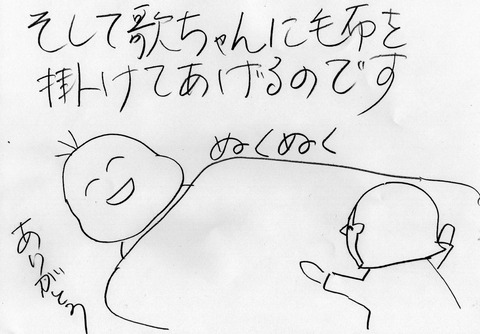 そして歌ちゃんに毛布を
掛けてあげるのです
ぬくぬく
ありがとう